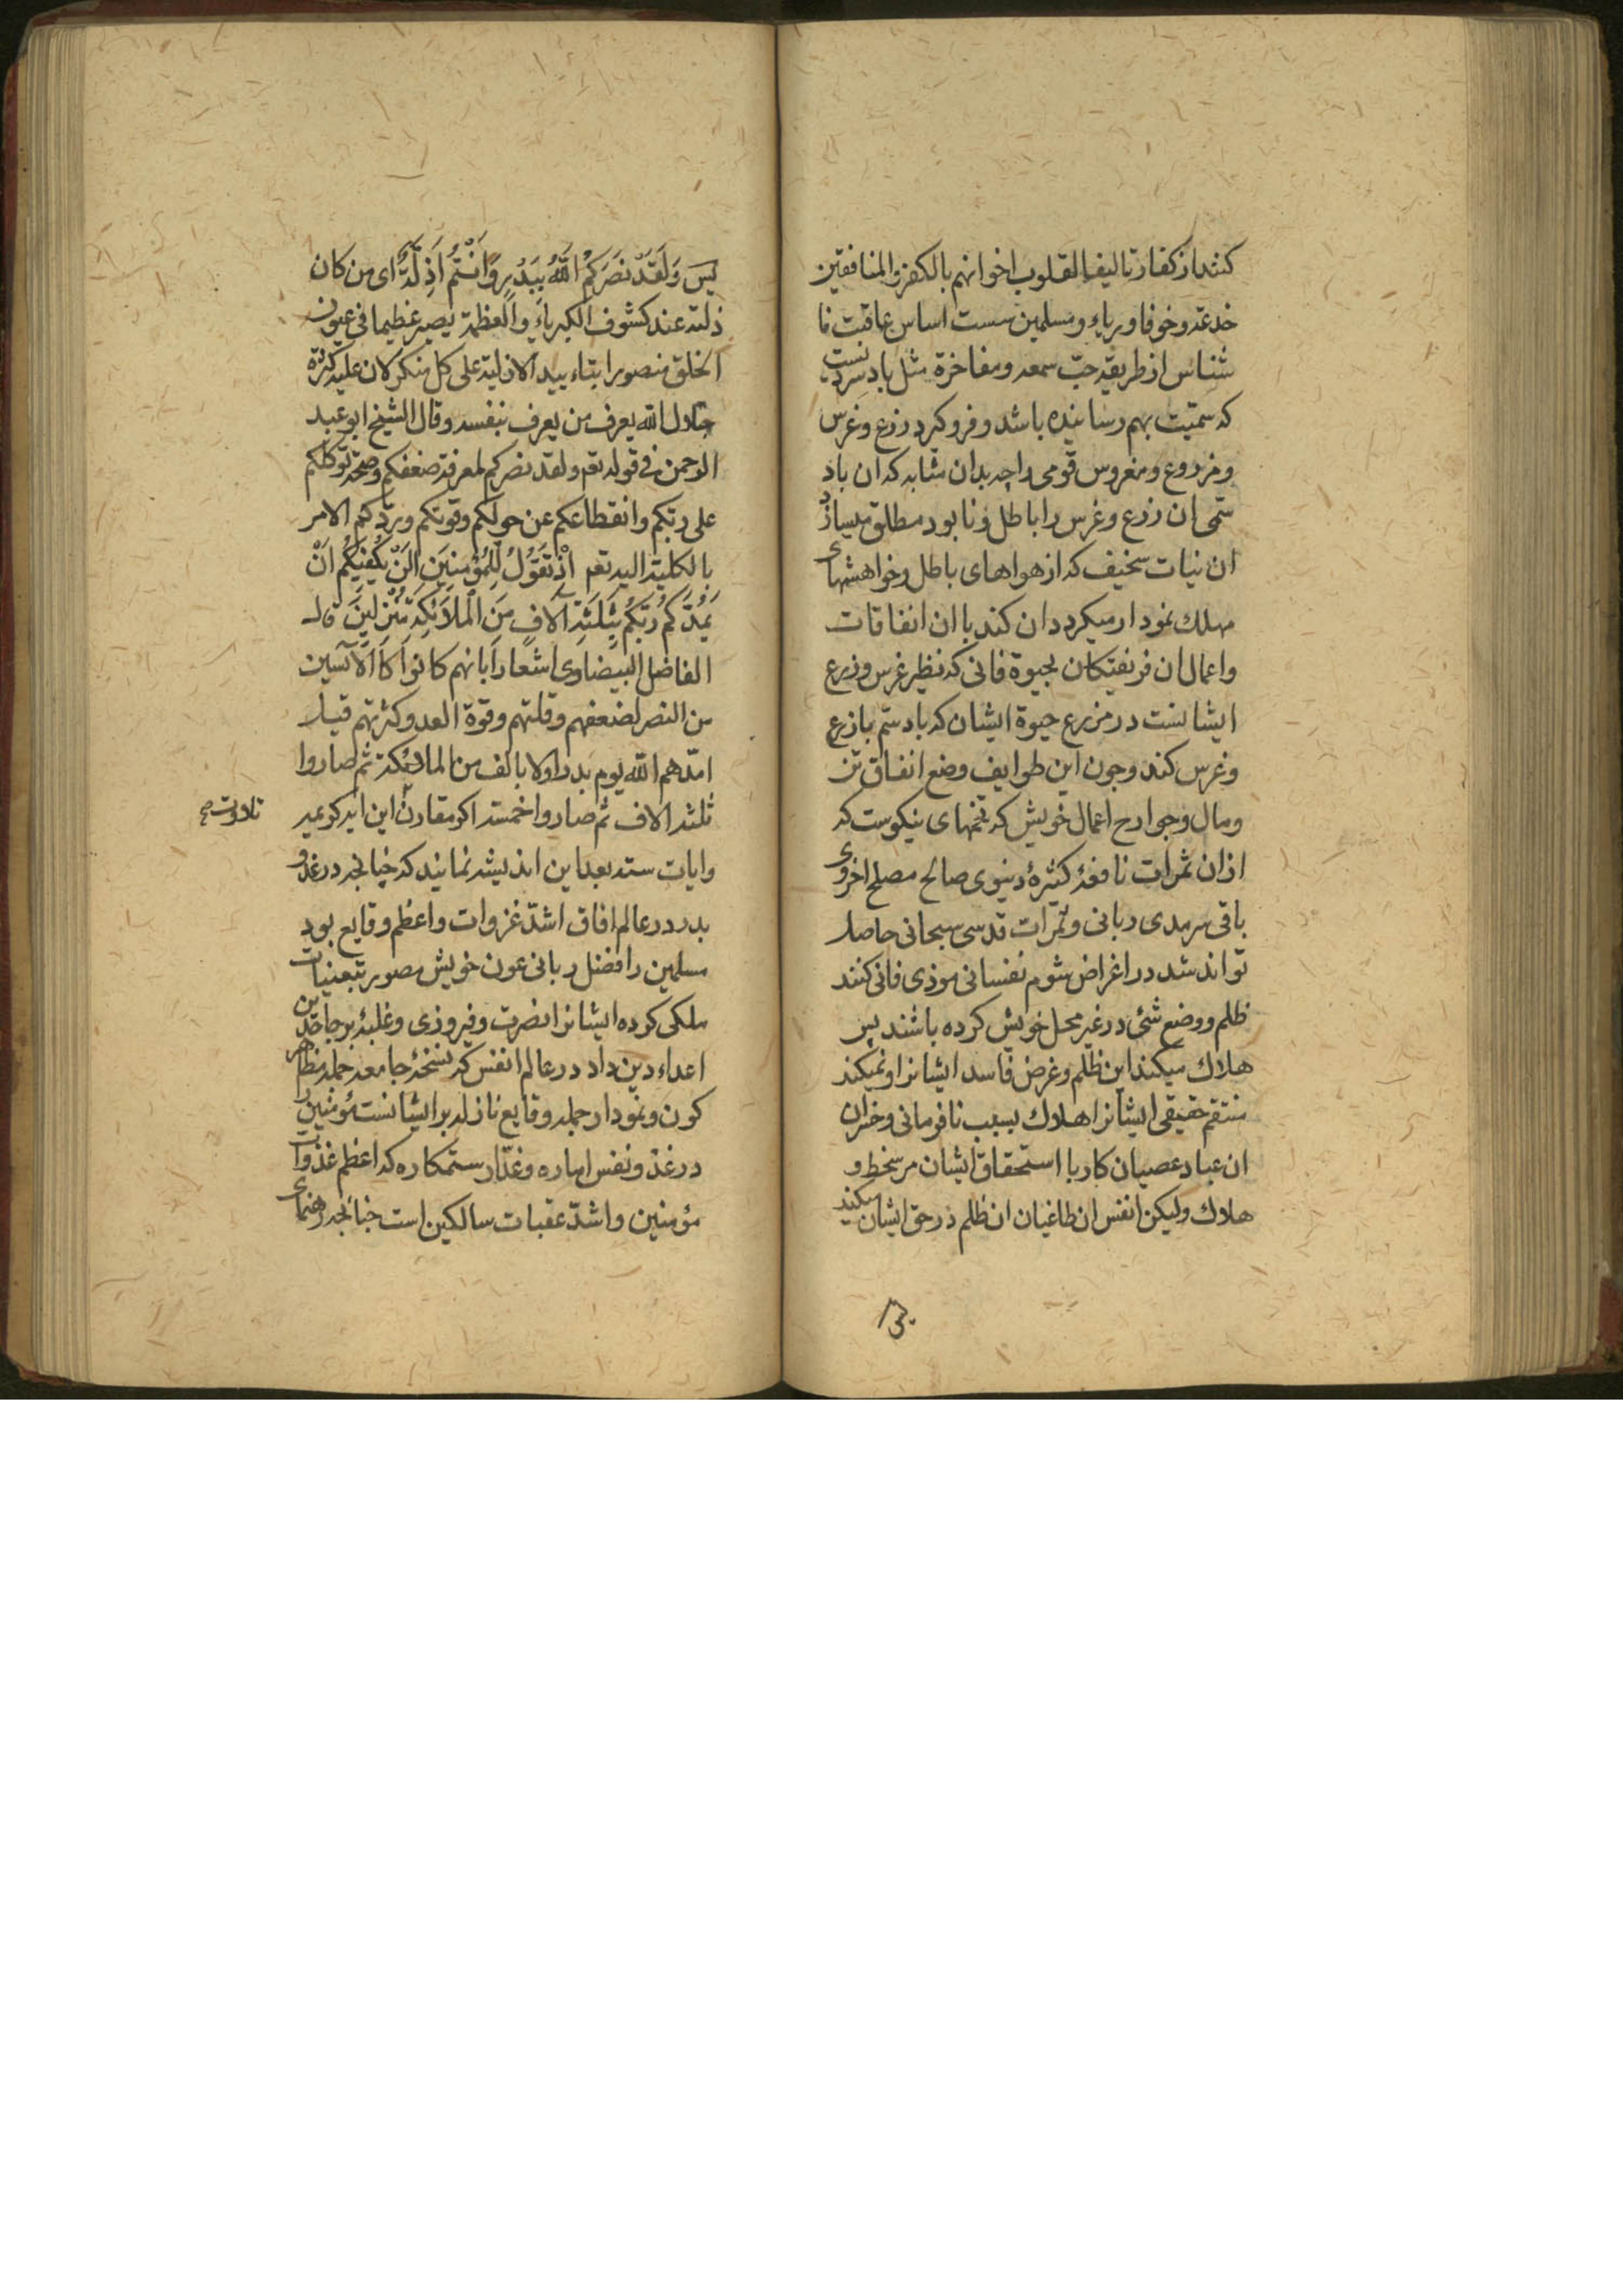 کنند از کفار تالیفا لقلوب اخوانهم بالکفر والمنافقین
خدعة وخوفا وریاء ومسلمین سست اساس عاقبت نا
شناس از طریقه حبّ سمعه ومفاخرة مثل باد سردیست
که سمیّت بهم رسانیده باشد وفرو گیرد زرع وغرس
ومزروع ومغروس قومی را چه بدان مثابه که ان باد
سمّی ان زرع وغرس را باطل ونابود مطلق میسازد
ان نیات سخیف که از هواهای باطل وخواهشهای
مهلک نمودار میکردد ان کند با ان انفاقات
واعمال ان فریفتکان بحیوة فانی که نظیر غرس وزرع
ایشانست در مزرع حیوة ایشان که باد سمّ بازرع
وغرس کند وچون این طوایف وضع انفاق تن
ومال وجوارح اعمال خویش که تخمهای نیکوست که
ازان ثمرات نافعهٔ کثیرهٔ دنیوی صالح مصلح اخروی
باقی سرمدی ربانی وثمرات قدسی سبحانی حاصل
تواند شد در اغراض شوم نفسانی موذی فانی کنند
ظلم ووضع شئ در غیر محل خویش کرده باشند پس
هلاک میکند این ظلم وغرض فاسد ایشانرا ونمیکند
منتقم حقیقی ایشانرا هلاک بسبب نافرمانی وخسران
ان عباد عصیان کار با استحقاق ایشان مر سخط و
هلاک ولیکن انفس ان طاغیان ان ظلم در حق ایشان میکند
یس وَلَقَدْ نَصَرَكُمُ اللَّهُ بِبَدْرٍ وَأَنْتُمْ أَذِلَّةٌ ای من کان
ذلته عند کشوف الکبریاء والعظمة یصیر عظیما فی عیون
الخلق منصورا بتاءیید الازلیة علی کل منکر لان علیه کثرة
جلال الله یعرف من یعرف بنفسه وقال الشیخ ابو عبد
الرحمن فی قوله تع ولقد نصرکم لمعرفة ضعفکم وصحة توکلکم
علی ربکم وانقطاعکم عن حولکم وقوتکم وردکم الامر
بالکلیة الیه تع إِذْ تَقُولُ لِلْمُؤْمِنِينَ أَلَنْ يَكْفِيَكُمْ أَنْ
يُمِدَّكُمْ رَبُّكُمْ بِثَلَثَةِ آلَافٍ مِنَ الْمَلَائِكَةِ مُنْزَلِينَ قال
الفاضل البیضاوی اشعارا بانهم کانوا کالآیسین
من النصر لضعفهم وقلتهم وقوة العدو وکثرتهم قیل
امدّهم الله یوم بدر اولا بالف من الملائکة ثم صاروا
ثلثة الاف ثم صاروا خمسة اکر مقارن این ایه کریمه
تلاوت صح
وایات سته بعد این اندیشه نمایند که چنانچه در غزو
بدر در عالم افاق اشدّ غزوات واعظم وقایع بود
مسلمین را فضل ربانی عون خویش مصور بتعینات
ملکی کرده ایشانرا نصرت وفیروزی وغلبهٔ بر جاحدین
اعداء دین داد در عالم انفس که نسخهٔ جامعه جمله مظاهر
کون ونمودار جمله وقایع نازله بر ایشانست مؤمنین را
در غزو نفس اماره وغدّار ستمکاره که اعظم غزوات
مؤمنین واشدّ عقبات سالکین است چنانچه رهنمای